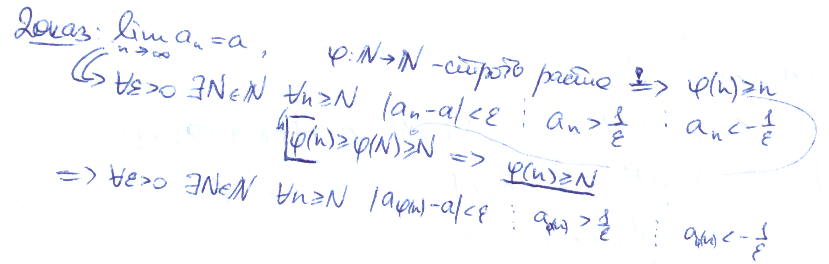 Доказ: lim aₙ = a, φ: ℕ→ℕ - строго расте ⇒ φ(n) ≥ n
n→∞
∀ε>0 ∃N∈ℕ ∀n≥N |aₙ-a|<ε ⋮ aₙ > 1/ε ⋮ aₙ < -1/ε
φ(n) ≥ φ(N) ≥ N => φ(n) ≥ N
=> ∀ε>0 ∃N∈ℕ ∀n≥N |a_φ(n)-a|<ε ⋮ a_φ(n) > 1/ε ⋮ a_φ(n) < -1/ε